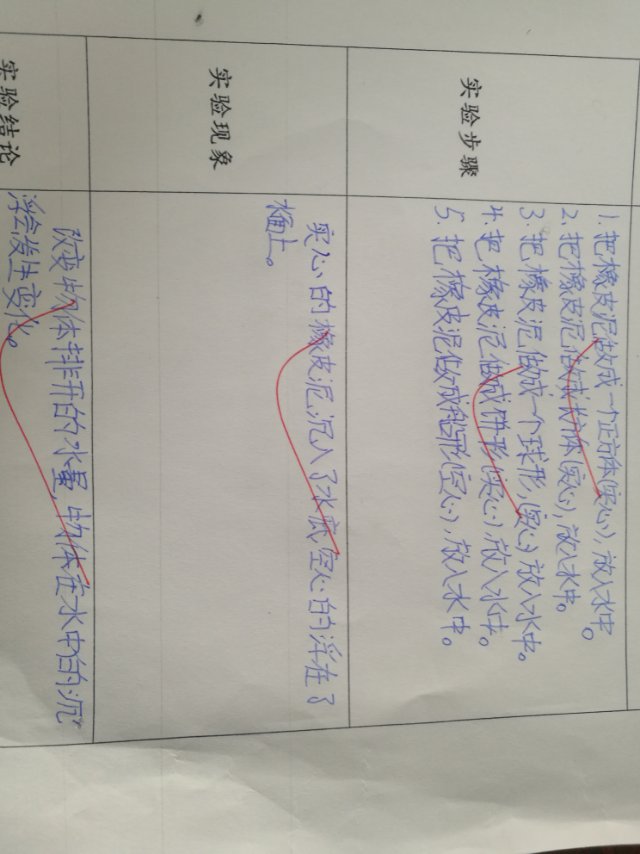 实验步骤
1. 把橡皮泥做成一个正方体(实心), 放入水中。
2. 把橡皮泥做成长方体(实心), 放入水中。
3. 把橡皮泥做成一个球形, (实心) 放入水中。
4. 把橡皮泥做成饼形(实心), 放入水中。
5. 把橡皮泥做成船形(空心), 放入水中。
实验现象
实心的橡皮泥沉入了水底, 空心的浮在了
水面上。
实验结论
改变物体排开的水量, 物体在水中的沉
浮会发生变化。